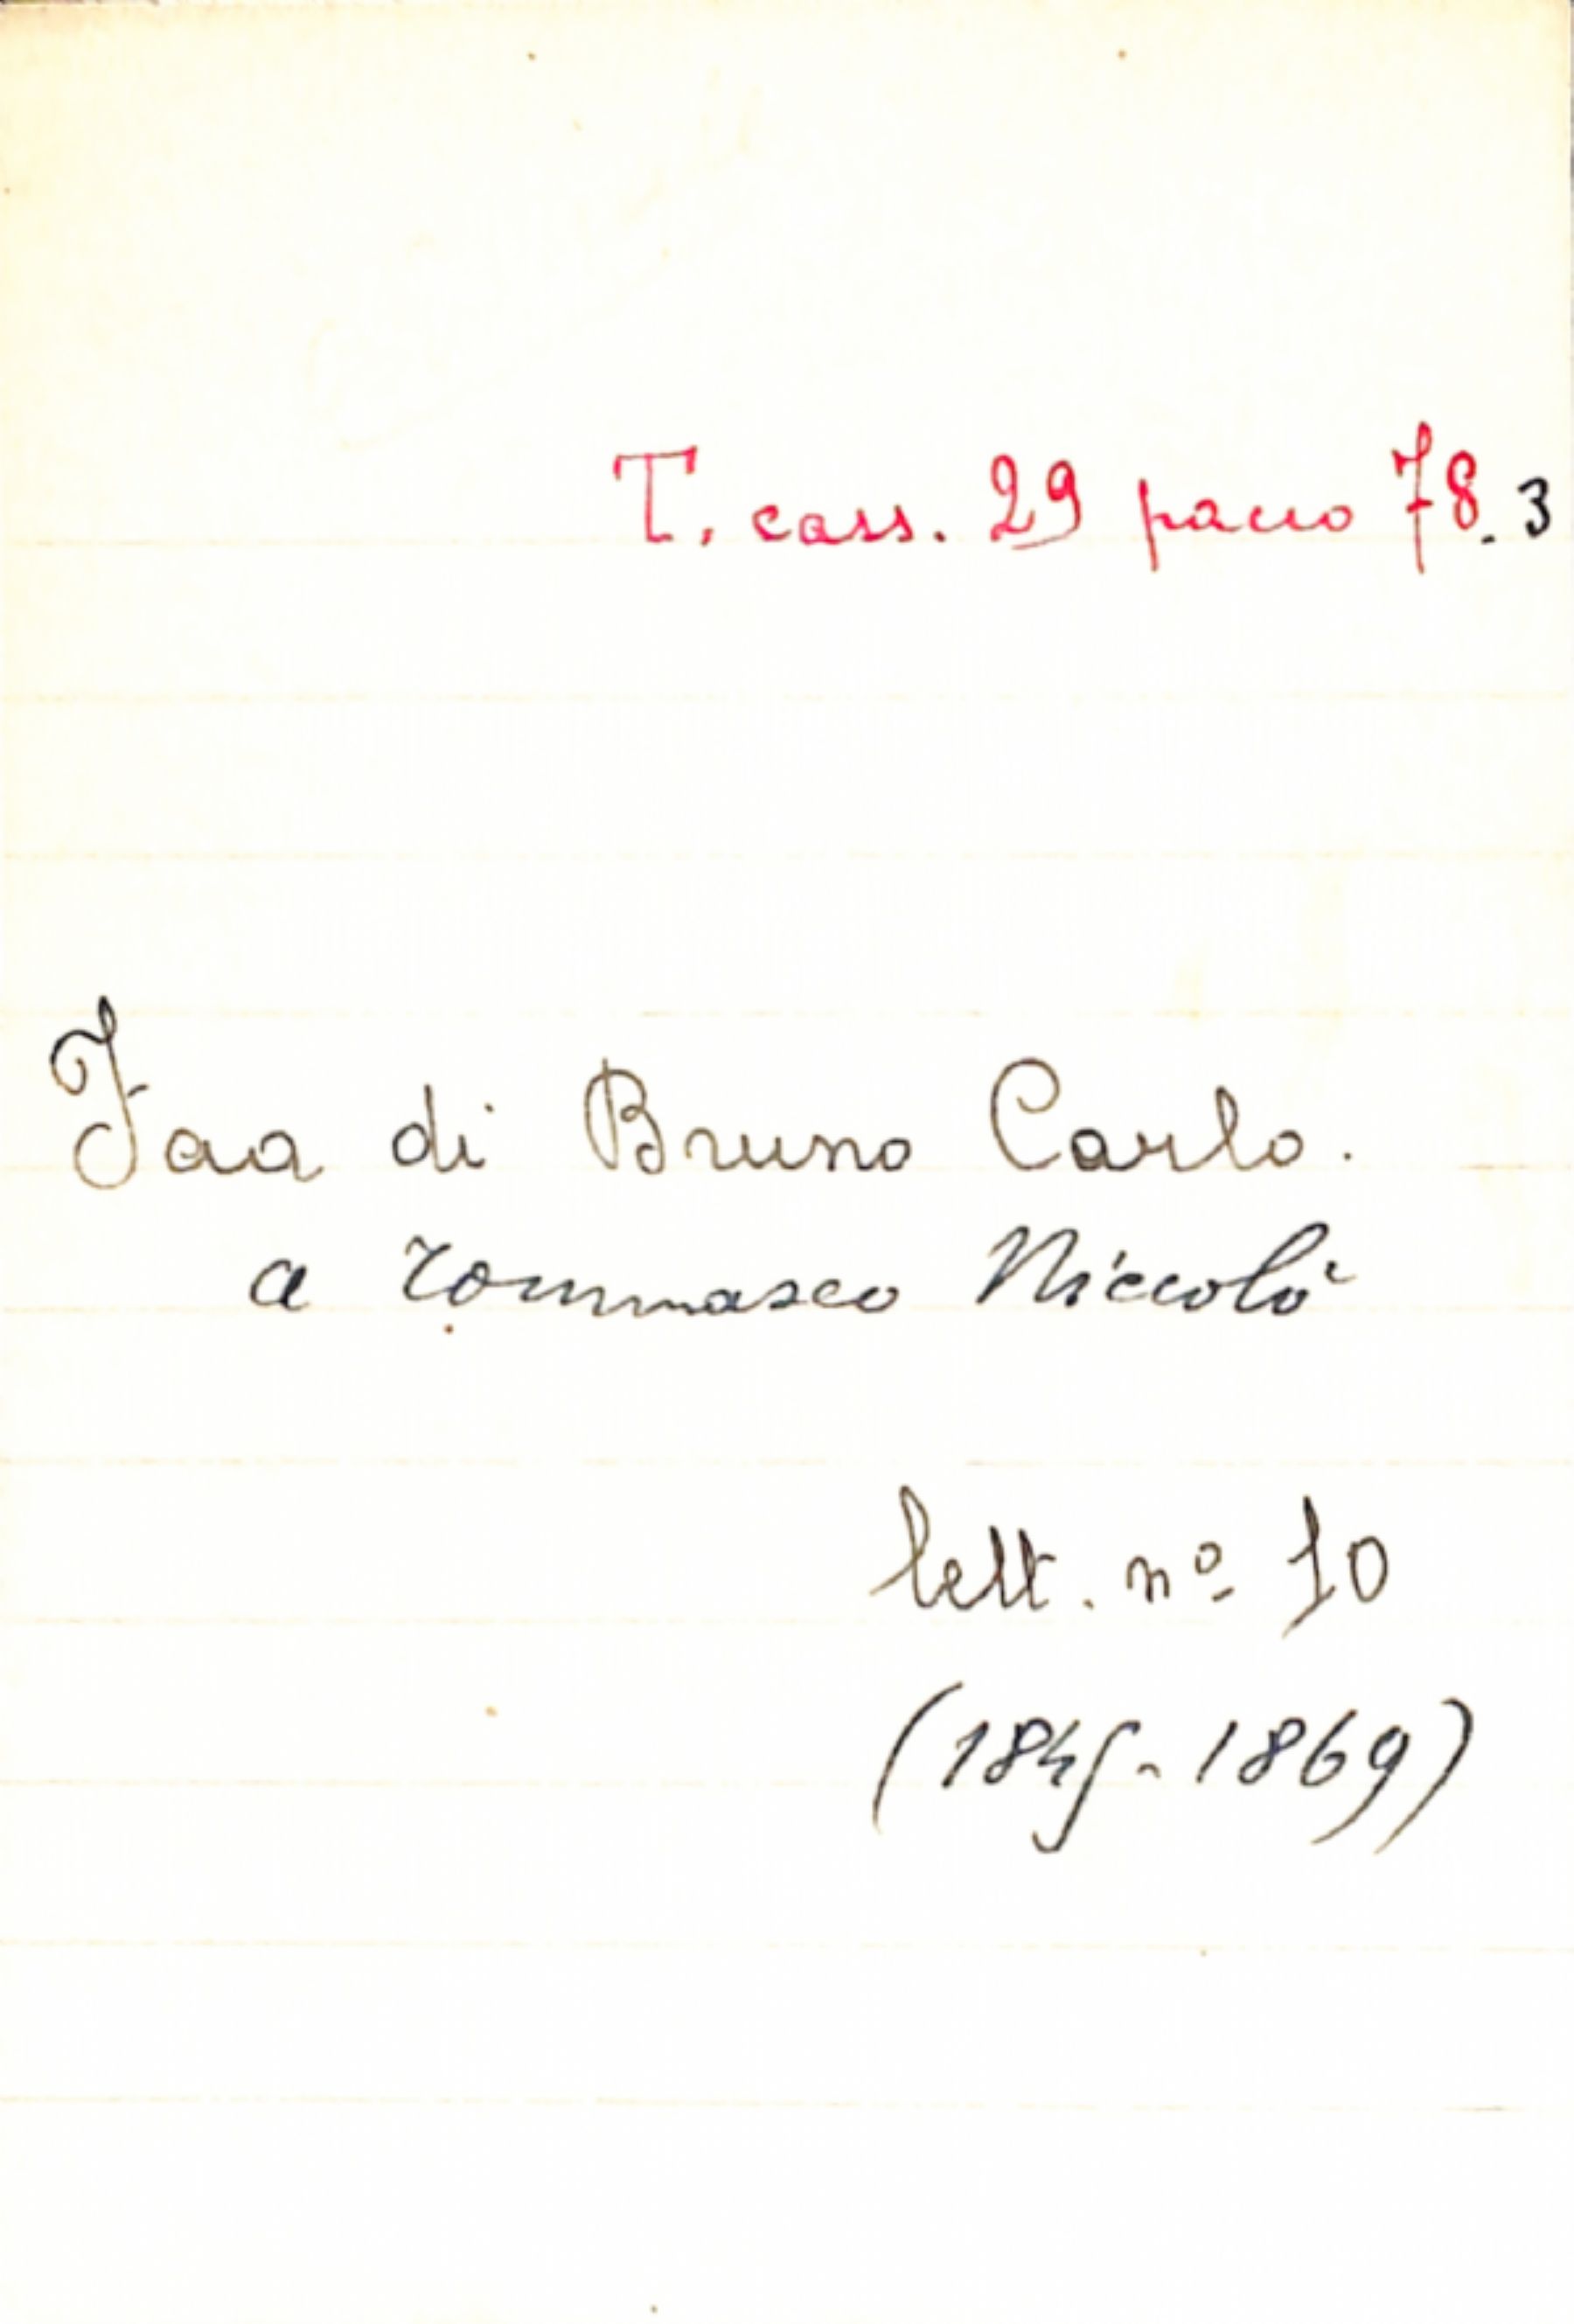 T. cass. 29 pacco 78.3
Faa di Bruno Carlo.
a Tommaseo Niccolò
lett. nº 10
(1845-1869)